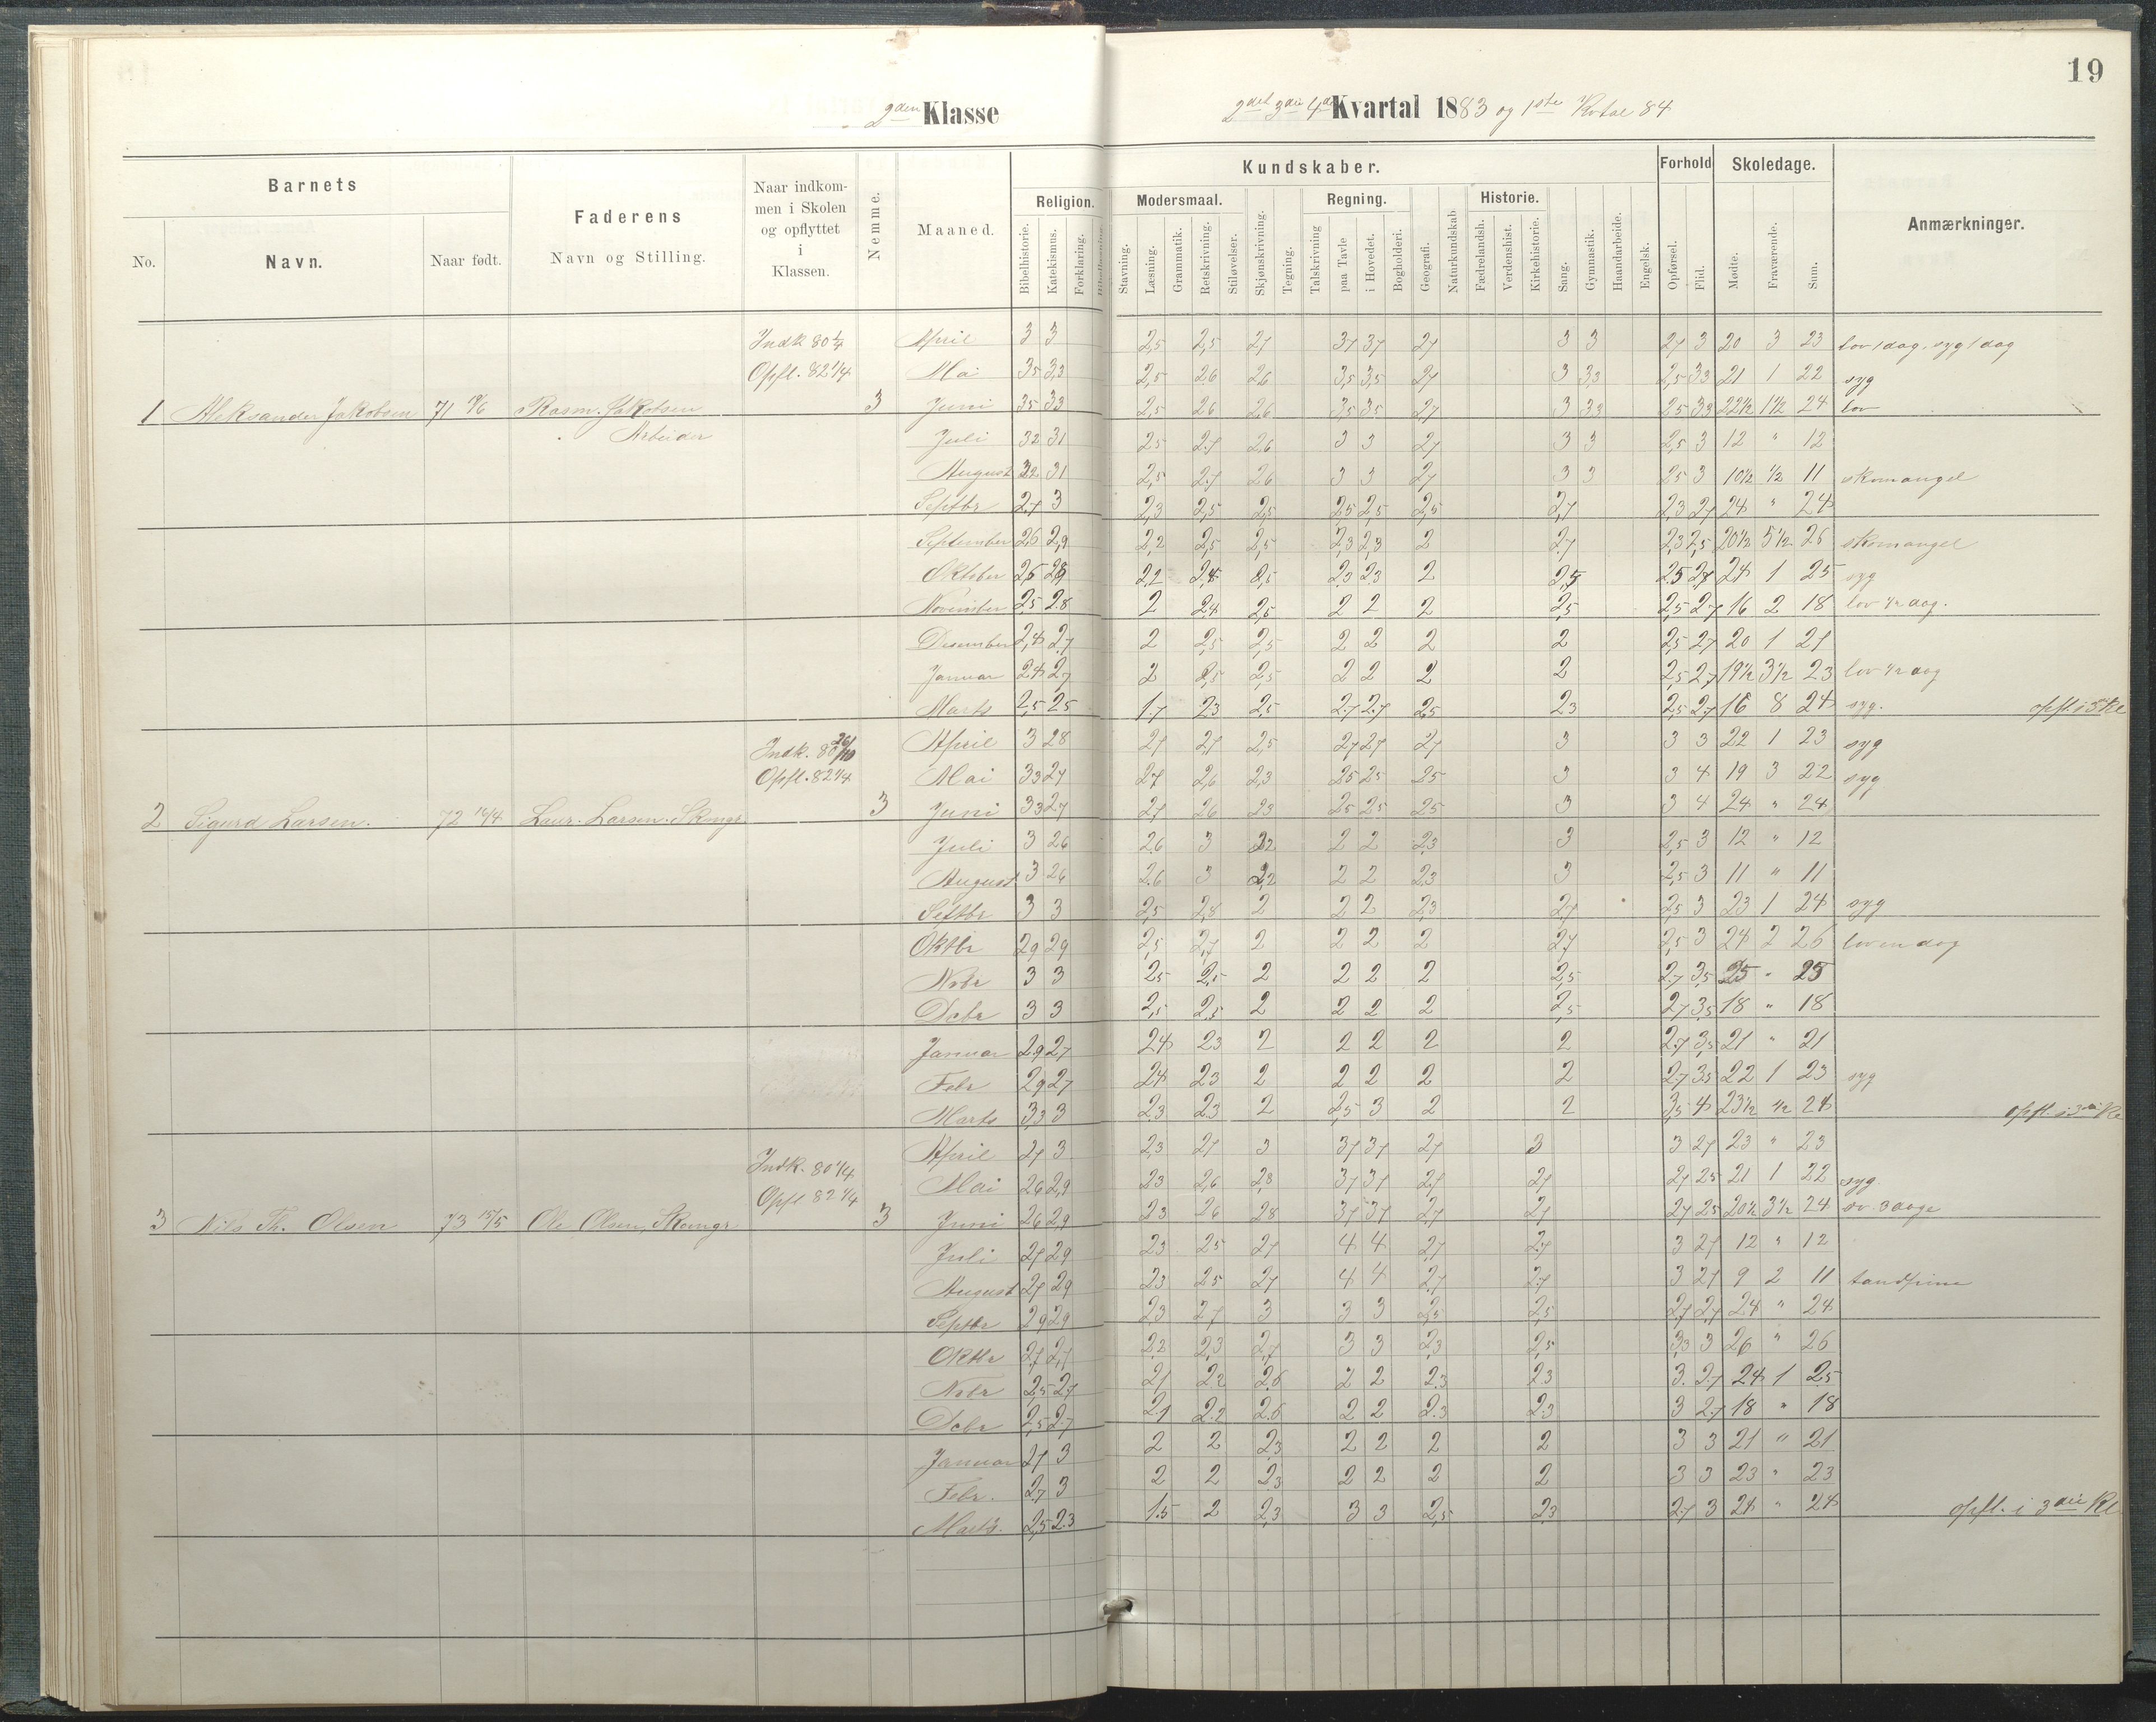 19
2den Klasse
2det 3die 4de Kvartal 1883 og 1ste Kvtal 84
Barnets
No.
Navn.
Naar født.
Faderens
Navn og Stilling.
Naar indkom-
men i Skolen
og opflyttet
i
Klassen.
Nemme.
Maaned.
Kundskaber.
Religion.
Bibelhistorie.
Katekismus.
Forklaring.
Bibellæsning.
Modersmaal.
Stavning.
Læsning.
Grammatik.
Retskrivning.
Stiløvelser.
Skjønskrivning.
Tegning.
Regning.
Talskrivning
paa Tavle
i Hovedet.
Bogholderi.
Geografi.
Naturkundskab
Historie.
Fædrelandsh.
Verdenshist.
Kirkehistorie.
Sang.
Gymnastik.
Haandarbeide.
Engelsk.
Forhold
Opførsel.
Flid.
Skoledage.
Mødte.
Fraværende.
Sum.
Anmærkninger.
Indk 80 April 3 3 2,5 2,5 2,7 3,7 3,7 2,7 3 3 2,7 3 20 3 23 lov 1 dag, syg 1 dag
Opfl. 82 1/4 Mai 3,5 3,3 2,5 2,6 2,6 3,5 3,5 2,7 3 3,3 2,5 3,3 21 1 22 syg
1 Aleksander Jakobsen 71 Rasm. Jakobsen 3 Juni 3,5 3,3 2,5 2,6 2,6 3,5 3,5 2,7 3 3,3 2,5 3,3 22 1/2 1 1/2 24 lov
Arbeider Juli 3,2 3,1 2,5 2,7 2,6 3 3 2,7 3 3 2,5 3 12 " 12
August 3,2 3,1 2,5 2,7 2,6 3 3 2,7 3 3 2,5 3 10 1/2 1/2 11 skomangel
Septbr 2,7 3 2,3 2,5 2,5 2,5 2,5 2,5 2,7 2,3 2,7 24 " 24
September 2,6 2,9 2,2 2,5 2,5 2,3 2,3 2 2,7 2,3 2,5 20 1/2 5 1/2 26 skomangel
Oktober 2,5 2,8 2,2 2,4 2,5 2,3 2,3 2 2,5 2,5 2,7 24 1 25 syg
November 2,5 2,8 2 2,4 2,5 2 2 2 2,5 2,5 2,7 16 2 18 lov 1/2 dag.
Desember 2,4 2,7 2 2,5 2,5 2 2 2 2 2,5 2,7 20 1 21
Januar 2,4 2,7 2 2,5 2,5 2 2 2 2 2,5 2,7 19 1/2 3 1/2 23 lov 1/2 dag
Marts 2,5 2,5 1,7 2,3 2,5 2,7 2,7 2,5 2,3 2,5 2,7 16 8 24 syg. opfl. i
Indk. 80 26/10 April 3 2,8 2,7 2,7 2,5 2,7 2,7 2,7 3 3 3 22 1 23 syg
Opfl. 82 1/4 Mai 3,3 2,7 2,7 2,6 2,3 2,5 2,5 2,5 3 3 4 19 3 22 syg
2 Sigurd Larsen. 72 16/4 Laur. Larsen. Skmgr. 3 Juni 3,3 2,7 2,7 2,6 2,3 2,5 2,5 2,5 3 3 4 24 " 24
Juli 3 2,6 2,6 3 2,2 2 2 2,3 3 2,5 3 12 " 12
August 3 2,6 2,6 3 2,2 2 2 2,3 3 2,5 3 11 " 11
Septbr 3 3 2,5 2,8 2 2 2 2,3 2,7 2,5 3 23 1 24 syg
Oktbr 2,9 2,9 2,5 2,7 2 2 2 2 2,7 2,5 3 24 2 26 lov en dag
Nobr 3 3 2,5 2,5 2 2 2 2 2,5 2,7 3,5 25 " 25
Dcbr 3 3 2,5 2,5 2 2 2 2 2,5 2,7 3,5 18 " 18
Januar 2,9 2,7 2,4 2,3 2 2 2 2 2 2,7 3,5 21 " 21
Febr 2,9 2,7 2,4 2,3 2 2 2 2 2 2,7 3,5 22 1 23 syg
Marts 3,3 3 2,3 2,3 2 2,5 3 2 2 3,5 4 23 1/2 1/2 24 opfl. i 3die Kl
Indk. 80 1/4 April 2,7 3 2,3 2,7 3 3,7 3,7 2,7 3 3 2,7 23 " 23
Opfl 82 1/4 Mai 2,6 2,9 2,3 2,6 2,8 3,7 3,7 2,7 2,7 2,7 2,5 21 1 22 syg.
3 Nils Th. Olsen 73 15/5 Ole Olsen, Skomgr 3 Juni 2,6 2,9 2,3 2,6 2,8 3,7 3,7 2,7 2,7 2,7 2,5 20 1/2 3 1/2 24 3 dage
Juli 2,7 2,9 2,3 2,5 2,7 4 4 2,7 2,7 3 2,7 12 " 12
August 2,7 2,9 2,3 2,5 2,7 4 4 2,7 2,7 3 2,7 9 2 11 tandpine
Septbr 2,9 2,9 2,3 2,7 3 3 3 2,5 2,5 2,7 2,7 24 " 24
Oktbr 2,7 2,7 2,2 2,3 2,7 3 3 2,3 2,5 3,3 3 26 " 26
Nobr 2,5 2,7 2,1 2,2 2,6 2 2 2,3 2,3 3 2,7 24 1 25
Dcbr 2,5 2,7 2,1 2,2 2,6 2 2 2,3 2,3 3 2,7 18 " 18
Januar 2,7 3 2 2 2,3 2 2 2 2 3 3 21 " 21
Febr. 2,7 3 2 2 2,3 2 2 2 2 3 3 23 " 23
Marts. 2,5 2,3 1,5 2 2,3 3 3 2,5 2,3 2,7 3 24 " 24 opfl. i 3die Kl